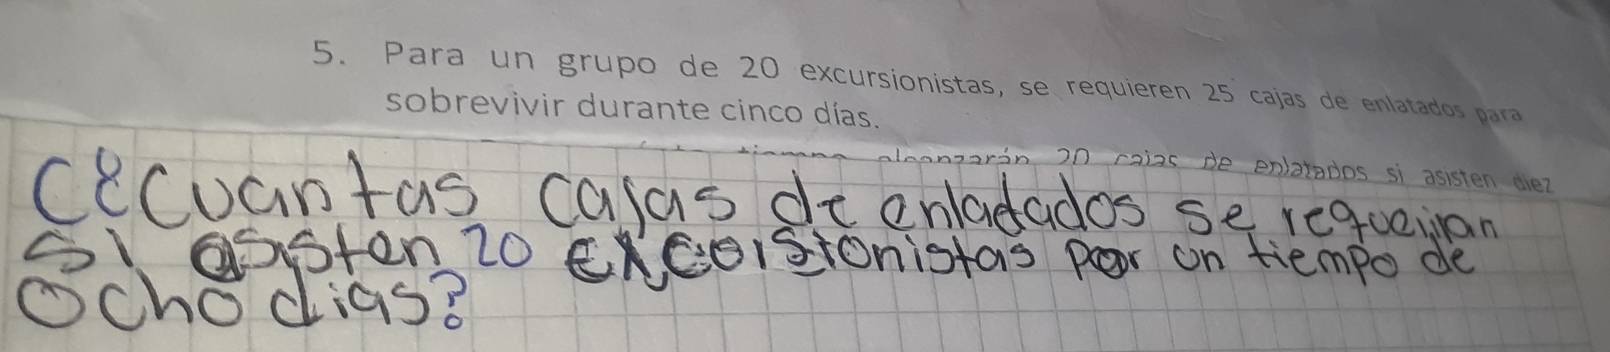 5. Para un grupo de 20 excursionistas, se requieren 25 cajas de enlatados para
sobrevivir durante cinco días.
alcanzarán 20 cajas de enlatados si asisten diez
¿Cuantas cajas de enlatados se requeiran
si asisten 20 excorsionistas por un tiempo de
ocho dias?